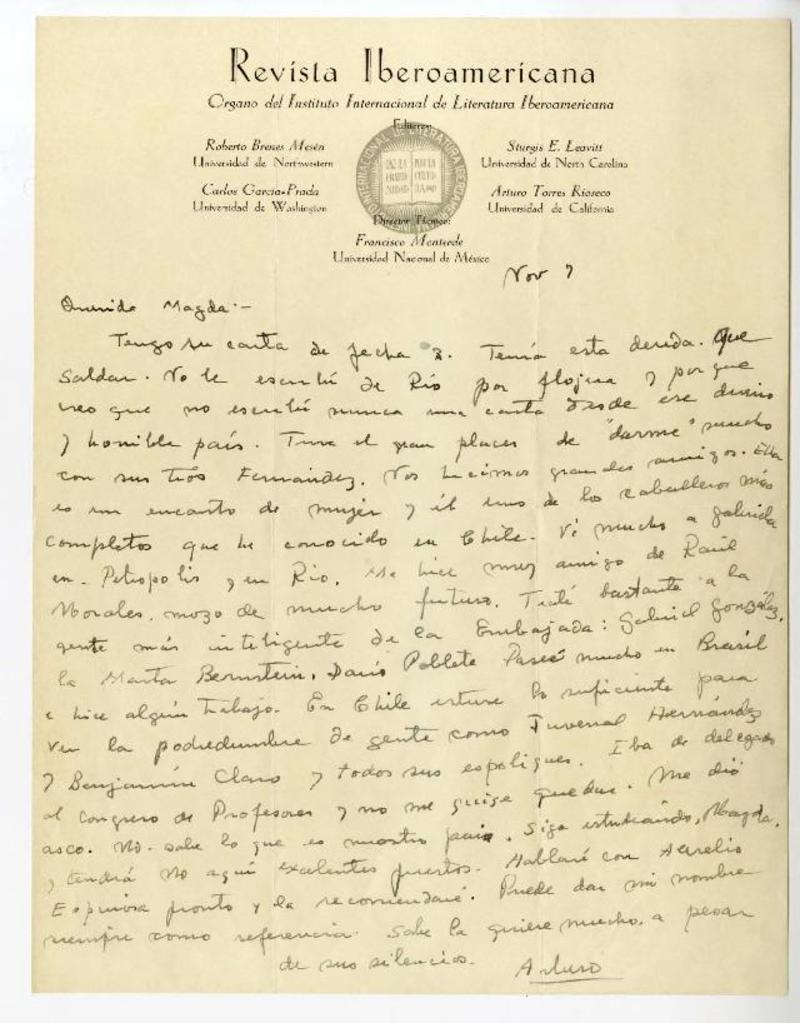 Revista Iberoamericana
Organo del Instituto Internacional de Literatura Iberoamericana
Editores:
Roberto Brenes Mesén
Universidad de Northwestern
Carlos García-Prada
Universidad de Washington
Sturgis E. Leavitt
Universidad de North Carolina
Arturo Torres Rioseco
Universidad de California
Director Técnico:
Francisco Monterde
Universidad Nacional de México
Nov 7
Querida Magda:-
Tengo su carta de fecha 2. Tenía esta deuda que
saldar. No le escribí de Río por flojera y porque
creo que no escribí nunca una carta desde ese divino
y horrible país. Tuve el gran placer de "darme" mucho
con sus tíos Fernández. Nos hicimos grandes amigos. Ella
es un encanto de mujer y él uno de los caballeros más
completos que he conocido en Chile. Vi mucho a Gabriela
en Petropolis y en Río. Me hice muy amigo de Raúl
Morales, mozo de mucho futuro. Traté bastante a la
gente más inteligente de la Embajada: Gabriel González,
la Marta Bernstein, Darío Poblete Paseé mucho en Brasil
e hice algún trabajo. En Chile estuve lo suficiente para
ver la podredumbre de gente como Juvenal Hernández
y Benjamín Claro y todos sus espoliques. Iba de delegado
al Congreso de Profesores y no me quise quedar. Me dió
asco. No sabe lo que es nuestro país. Siga estudiando, Magda,
y tendrá aquí excelentes puestos. Hablaré con Aurelio
Espinosa pronto y la recomendaré. Puede dar mi nombre
siempre como referencia. Sabe la quiere mucho, a pesar
de sus silencios. Arturo